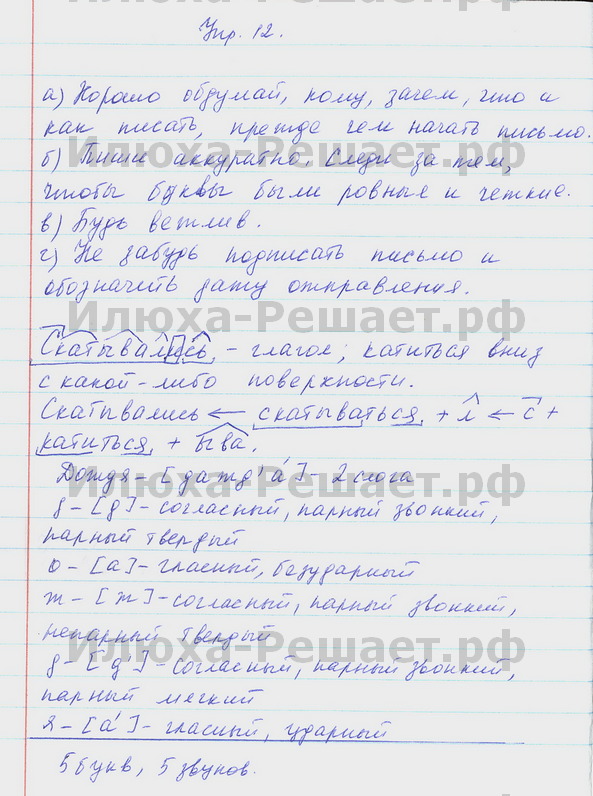 Илюха-Решает.рф
Упр. 12.
а) Хорошо обдумай, кому, зачем, что и
как писать, прежде чем начать письмо.
Илюха-Решает.рф
б) Пиши аккуратно. Следи за тем,
чтобы буквы были ровные и четкие.
в) Будь вежлив.
г) Не забудь подписать письмо и
обозначить дату отправления.
Илюха-Решает.рф
Скатывались, – глагол; катиться вниз
с какой-либо поверхности.
Скатывались ← скатываться + л ← с +
катиться + ыва.
Дождя – [дажд'а́] – 2 слога
Илюха-Решает.рф
д – [д] – согласный, парный звонкий,
парный твердый
о – [а] – гласный, безударный
ж – [ж] – согласный, парный звонкий,
непарный твердый
Илюха-Решает.рф
д – [д'] – согласный, парный звонкий,
парный мягкий
я – [а́] – гласный, ударный
5 букв, 5 звуков.
Илюха-Решает.рф